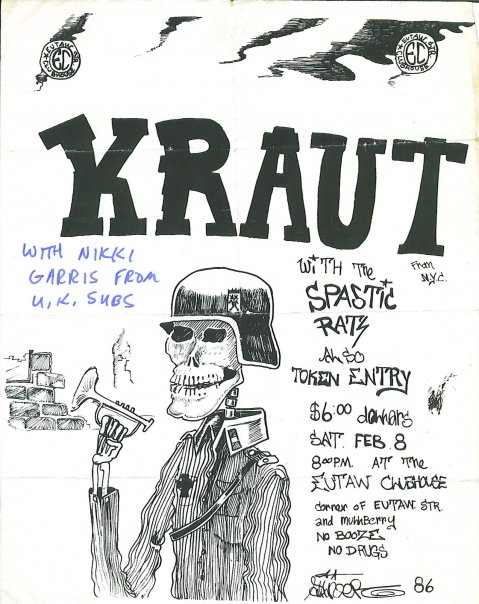 EUTAW STR.
EC
CLUBHOUSE
EUTAW STR.
EC
CLUBHOUSE
KRAUT
From
N.Y.C.
WITH NIKKI
GARRIS FROM
U.K. SUBS
WiTH the
SPASTiC
RATS
ALSO
TOKEN ENTRY
$6:00 dollars
SAT. FEB. 8
8:00 P.M. AT the
EUTAW CLUBHOUSE
corner of EUTAW STR.
and MULLBerry
NO BOOZE
NO DRUGS
86